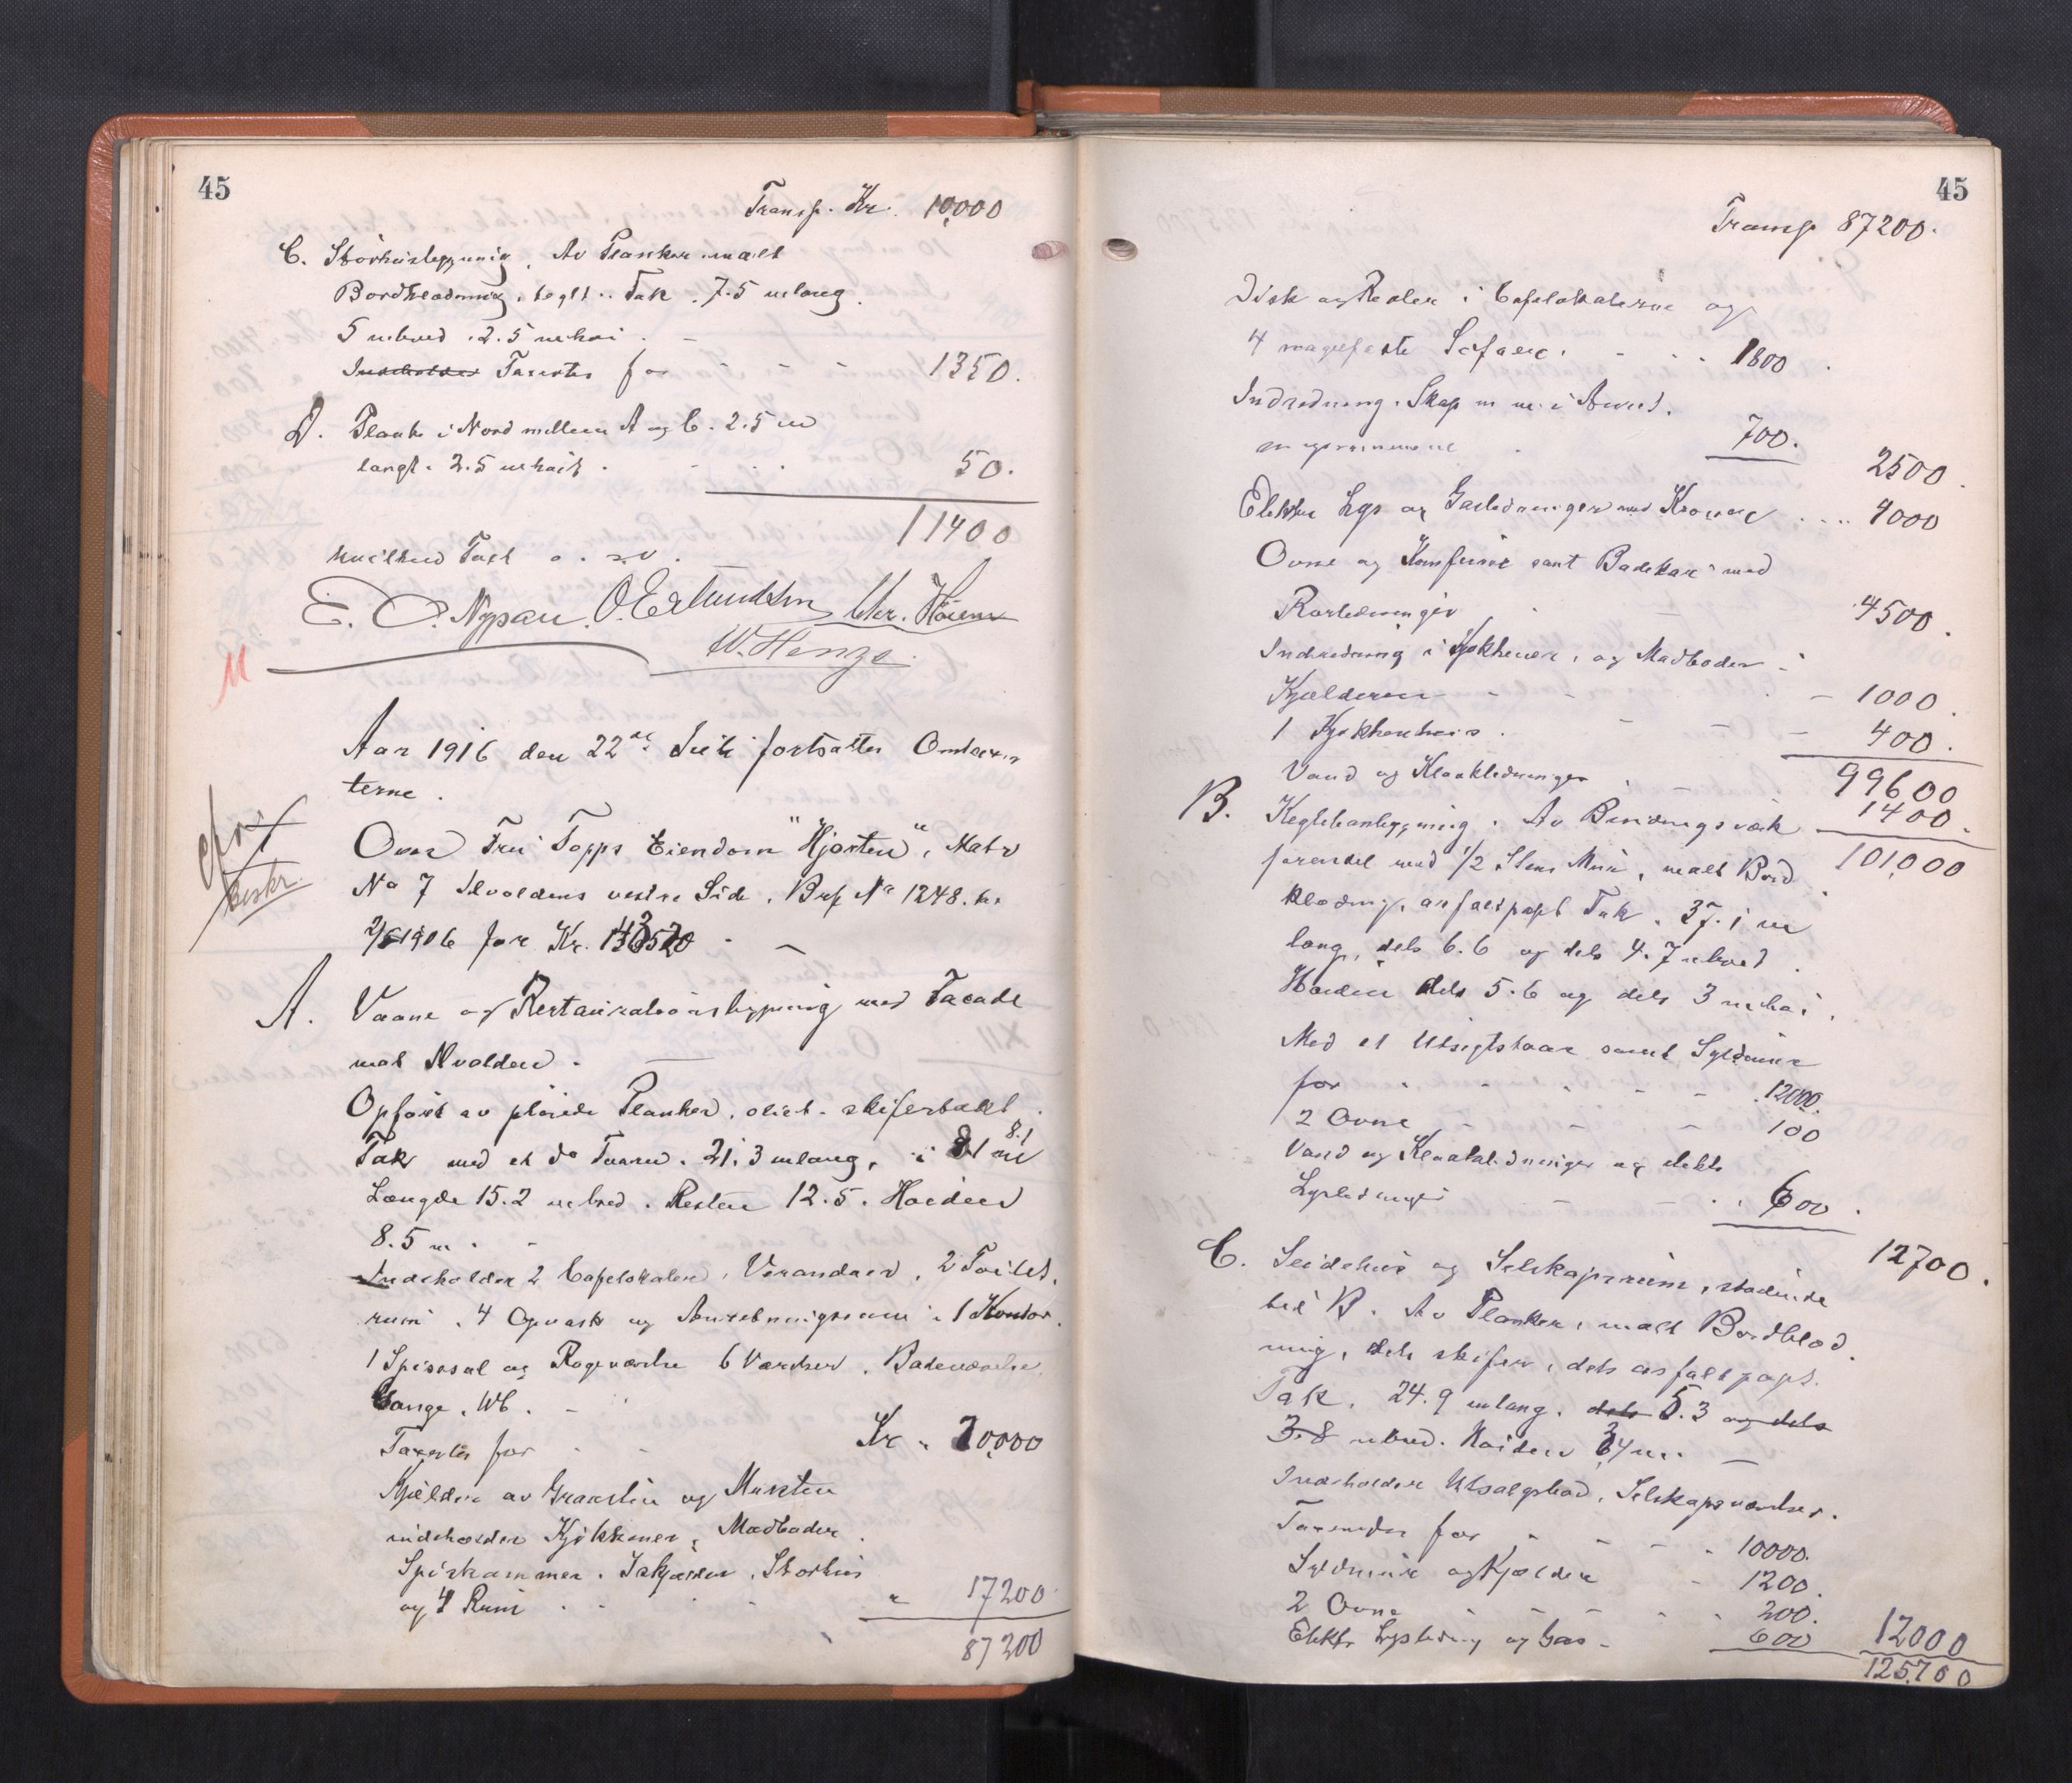 45
Transp. Kr. 10,000
C. Storhusbygning. Av Planker malt
Bordklædning, teglt. Tak. 7.5 m lang
5 m bred. 2.5 m høi.
Indeholder Taxertes for 1350.
D. Planke i Nord mellem A og C. 2.5 m
langt. 2.5 m høit. 50.
11400
hvilken Taxt o. s. v.
E. O. Nypan. O. Estundsen Chr. Høiem
W. Henze.
M
Aar 1916 den 22de Juli fortsattes Omtaxter
terne.
Beskr.
Over Fru Topps Eiendom "Hjorten", Matr
No 7 Ilvoldens vestre Side. Brf No 1248. av
2/6 1906 for Kr.
A. Vaane og Restaurationsbygning med Facade
mot Ilvolden.
Opført av pløiede Planker, oliet. skifertækt
Tak med et do Taarn. 21.3 m lang, i 8.1 m
Længde 15.2 m bred. Resten 12.5. Høiden
8.5 m.
Indeholder 2 Cafelokaler, Verandaer, 2 Toilet.
rum. 4 Opvask og Anretningsrum. 1 Kontor.
1 Spisesal og Rogeværelse 6 Værelser. Badeværelse,
Gange, WC.
Taxertes for Kr. 70,000
Kjelder av Graasten og Mursten
indeholder Kjøkkener, Madboder.
Spiskammer. Iskjælder. Storhus
og 4 Rum " 17200.
87200
45
Transp 87200.
Disk og Reoler i Cafelokalerne og
4 magefaste Sofaer. 1800.
Indredning. Skap m m. i Anret.
ningsrummene 700. 2500.
Elektr Lys og Gasledninger med Kroner 4000
Ovne og Komfurer samt Badekar med
Rørledninger 4500.
Indredning i Kjøkkener, og Madboder i
Kjælderen 1000.
1 Kjøkkenheis. 400.
99600
Vand og Kloakledninger 1400.
101,000
B. Keglebanbygning. Av Bindingsværk
forendel med 1/2 Stens Mur, malt Bord
klædning, asfaltpapt Tak. 37.1 m
lang, dels 6.6 og dels 4.7 m bred.
Høiden dels 5.6 og dels 3 m høi.
Med et Utsigtstaar samt Syldmur
for 12000.
2 Ovne 100
Vand og Kloakledninger og elektr
Lysledninger 600.
12700.
C. Seidehus og Selskapsrum, stødende
til B. Av Planker, malt Bordklæd.
ning, dels skifer, dels asfaltpapt.
Tak. 24.9 m lang. dels 5.3 og dels
3.8 m bred. Høiden 3,4 m.
Indeholder Utsalgsbod, Selskapsværelser.
Taxeredes for 10000.
Syldmur og Kjælder 1200.
2 Ovne 200.
Elektr Lysledning og Gas 600 12000
125,700